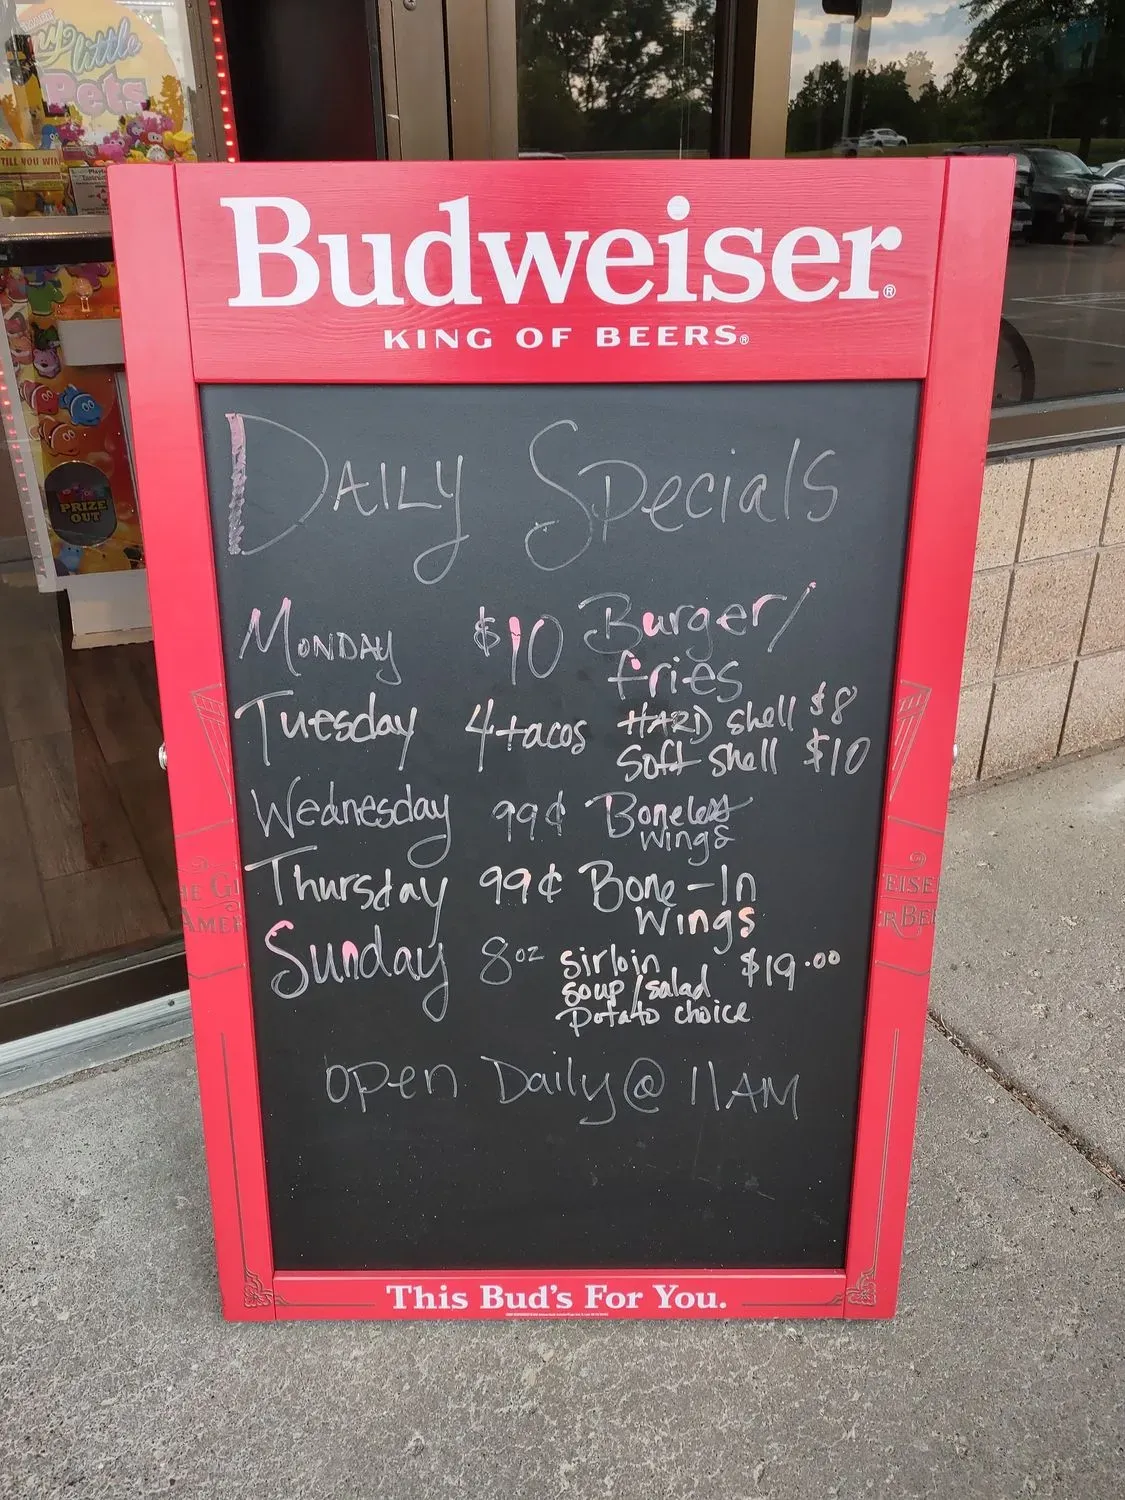 My little
Pets
TILL YOU WIN
PRIZE
OUT
Budweiser®
KING OF BEERS®
DAILY Specials
MONDAY $10 Burger/
fries
Tuesday 4 tacos HARD shell $8
Soft shell $10
Wednesday 99¢ Boneless
Wings
Thursday 99¢ Bone-In
Wings
Sunday 8oz sirloin $19.00
soup/salad
potato choice
open Daily @ 11 AM
This Bud's For You.